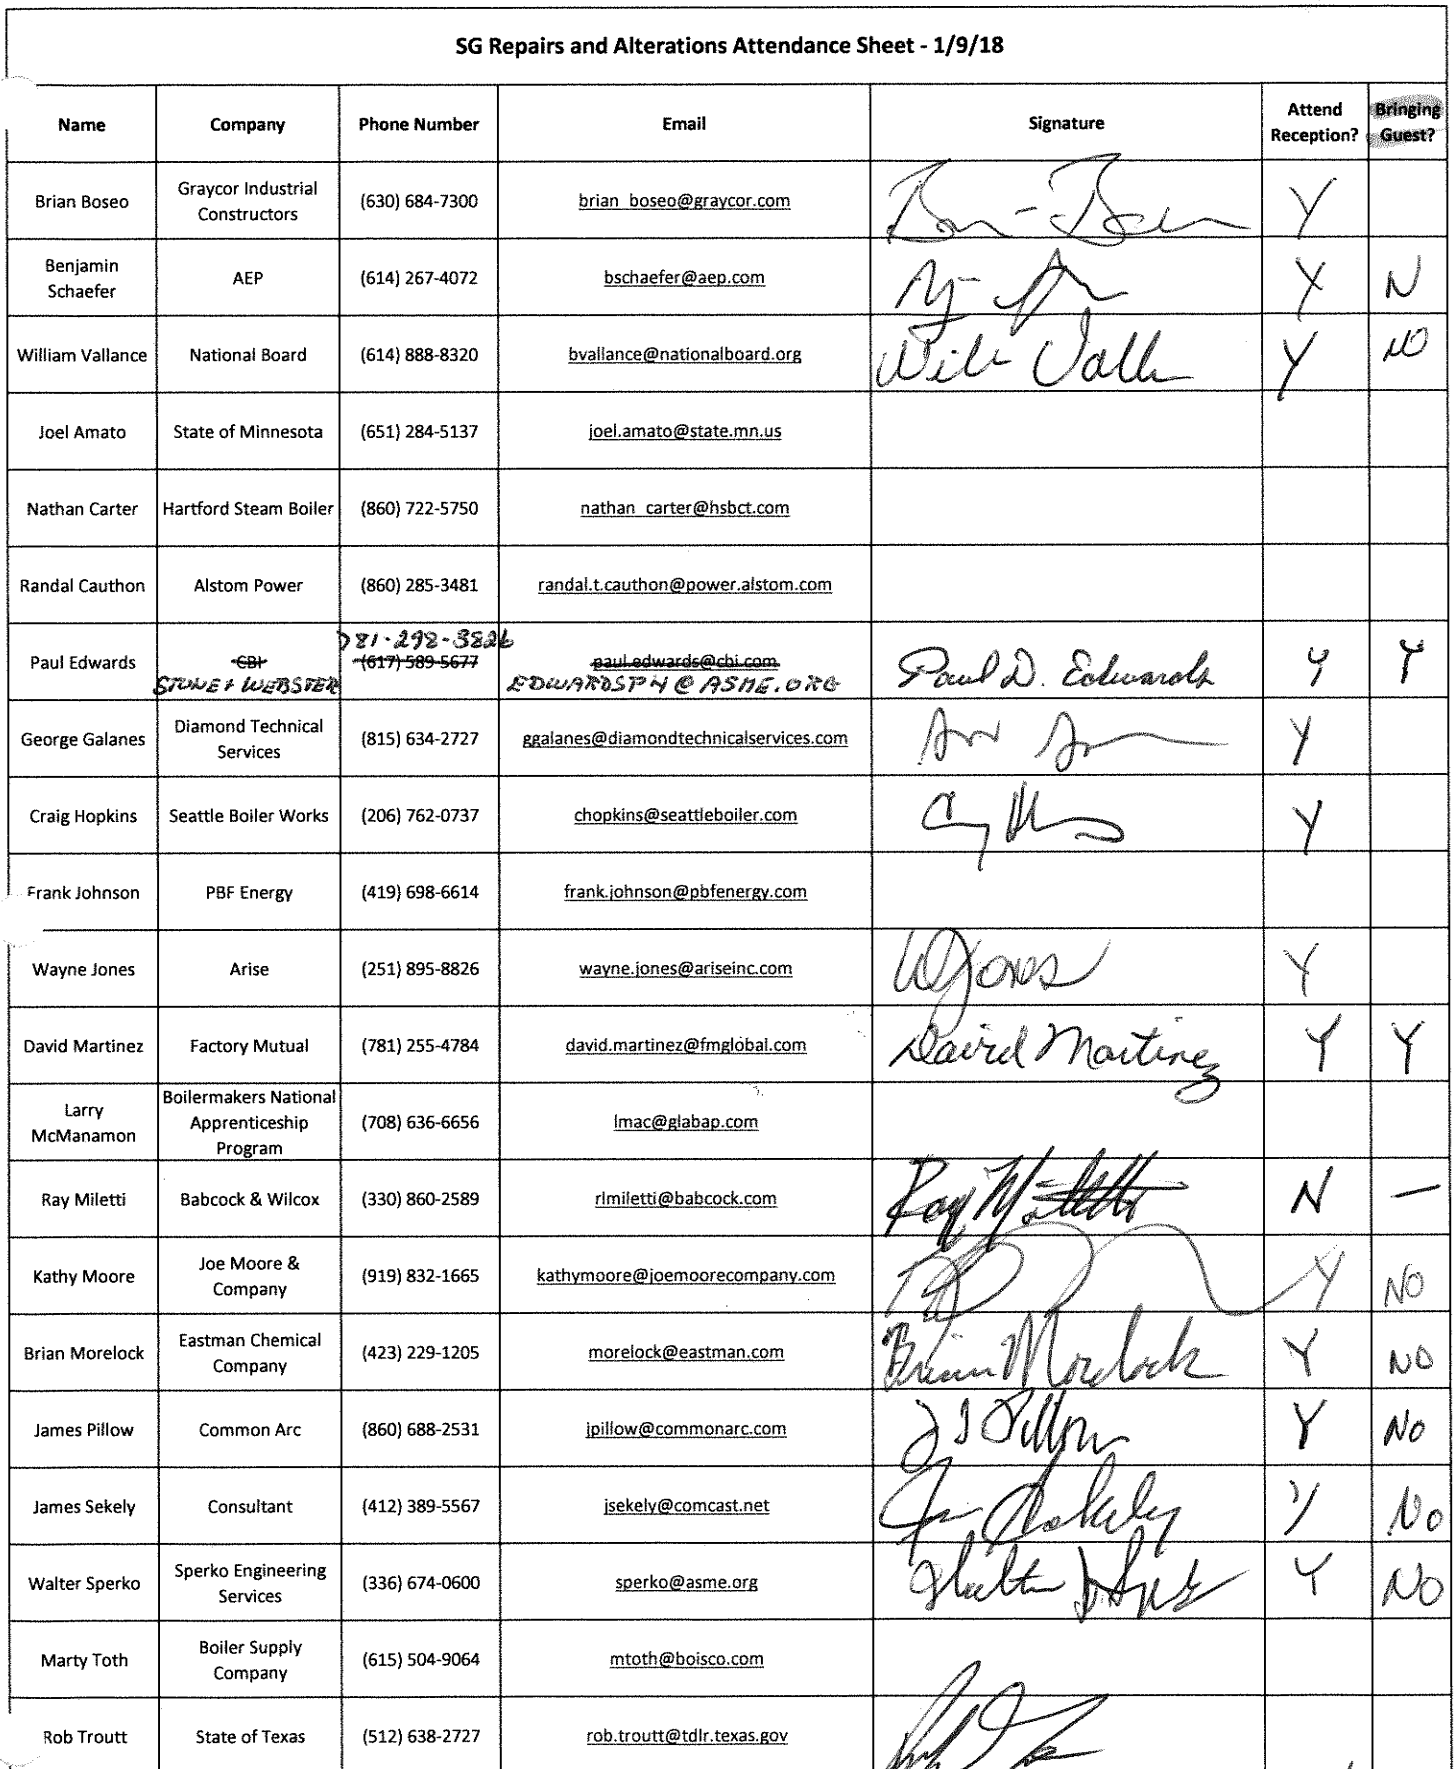 SG Repairs and Alterations Attendance Sheet - 1/9/18
Name Company Phone Number Email Signature Attend Reception? Bringing Guest?
Brian Boseo Graycor Industrial Constructors (630) 684-7300 brian_boseo@graycor.com Y
Benjamin Schaefer AEP (614) 267-4072 bschaefer@aep.com Y N
William Vallance National Board (614) 888-8320 bvallance@nationalboard.org Y NO
Joel Amato State of Minnesota (651) 284-5137 joel.amato@state.mn.us
Nathan Carter Hartford Steam Boiler (860) 722-5750 nathan_carter@hsbct.com
Randal Cauthon Alstom Power (860) 285-3481 randal.t.cauthon@power.alstom.com
781-298-3826
Paul Edwards CBI (617) 589-5677 paul.edwards@cbi.com Paul D. Edwards Y Y
STONE & WEBSTER EDWARDSP4@ASME.ORG
George Galanes Diamond Technical Services (815) 634-2727 ggalanes@diamondtechnicalservices.com Y
Craig Hopkins Seattle Boiler Works (206) 762-0737 chopkins@seattleboiler.com Y
Frank Johnson PBF Energy (419) 698-6614 frank.johnson@pbfenergy.com
Wayne Jones Arise (251) 895-8826 wayne.jones@ariseinc.com WJones Y
David Martinez Factory Mutual (781) 255-4784 david.martinez@fmglobal.com David Martinez Y Y
Larry McManamon Boilermakers National Apprenticeship Program (708) 636-6656 lmac@glabap.com
Ray Miletti Babcock & Wilcox (330) 860-2589 rlmiletti@babcock.com Ray Miletti N —
Kathy Moore Joe Moore & Company (919) 832-1665 kathymoore@joemoorecompany.com Y NO
Brian Morelock Eastman Chemical Company (423) 229-1205 morelock@eastman.com Brian Morelock Y NO
James Pillow Common Arc (860) 688-2531 jpillow@commonarc.com Pillow Y No
James Sekely Consultant (412) 389-5567 jsekely@comcast.net Jim Sekely Y No
Walter Sperko Sperko Engineering Services (336) 674-0600 sperko@asme.org Y NO
Marty Toth Boiler Supply Company (615) 504-9064 mtoth@boisco.com
Rob Troutt State of Texas (512) 638-2727 rob.troutt@tdlr.texas.gov